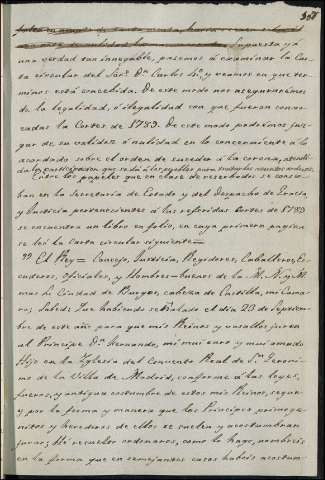 Supuesta ya
una verdad tan innegable, pasemos á examinar la Car-
ta circular del Sor. Dn. Carlos 4o. y veamos en que ter-
minos está concebida. De este modo nos aseguraremos
de la legalidad, ó ilegalidad con que fueron convo-
cadas las Cortes de 1789. De este modo podremos juz-
gar de su validez ó nulidad en lo concerniente á lo
acordado sobre el orden de suceder á la corona,
Entre los papeles que en clase de reservados se conser-
ban en la Secretaria de Estado y del Despacho de Gracia
y Justicia pertenecientes á las referidas Cortes de 1789
se encuentra un libro en folio, en cuya primera pagina
se leé la Carta circular siguiente =
" El Rey = Concejo, Justicia, Regidores, Caballeros, Es-
cuderos, Oficiales, y Hombres-buenos de la M. N. y M.
mas L. Ciudad de Burgos, cabeza de Castilla, mi Cama-
ra; Sabed: Que habiendo señalado el dia 23 de Septiem-
bre de este año para que mis Reinos y vasallos juren
al Principe Dn. Fernando, mi mui caro y mui amado
Hijo en la Iglesia del Convento Real de Sn. Geroni-
mo de la Villa de Madrid, conforme á las leyes,
fueros, y antigua costumbre de estos mis Reinos, segun
y por la forma y manera que los Principes primoge-
nitos y herederos de ellos se suelen y acostumbran
jurar; He resuelto ordenaros, como lo hago, nombreis
en la forma que en semejantes casos habeis acostum-